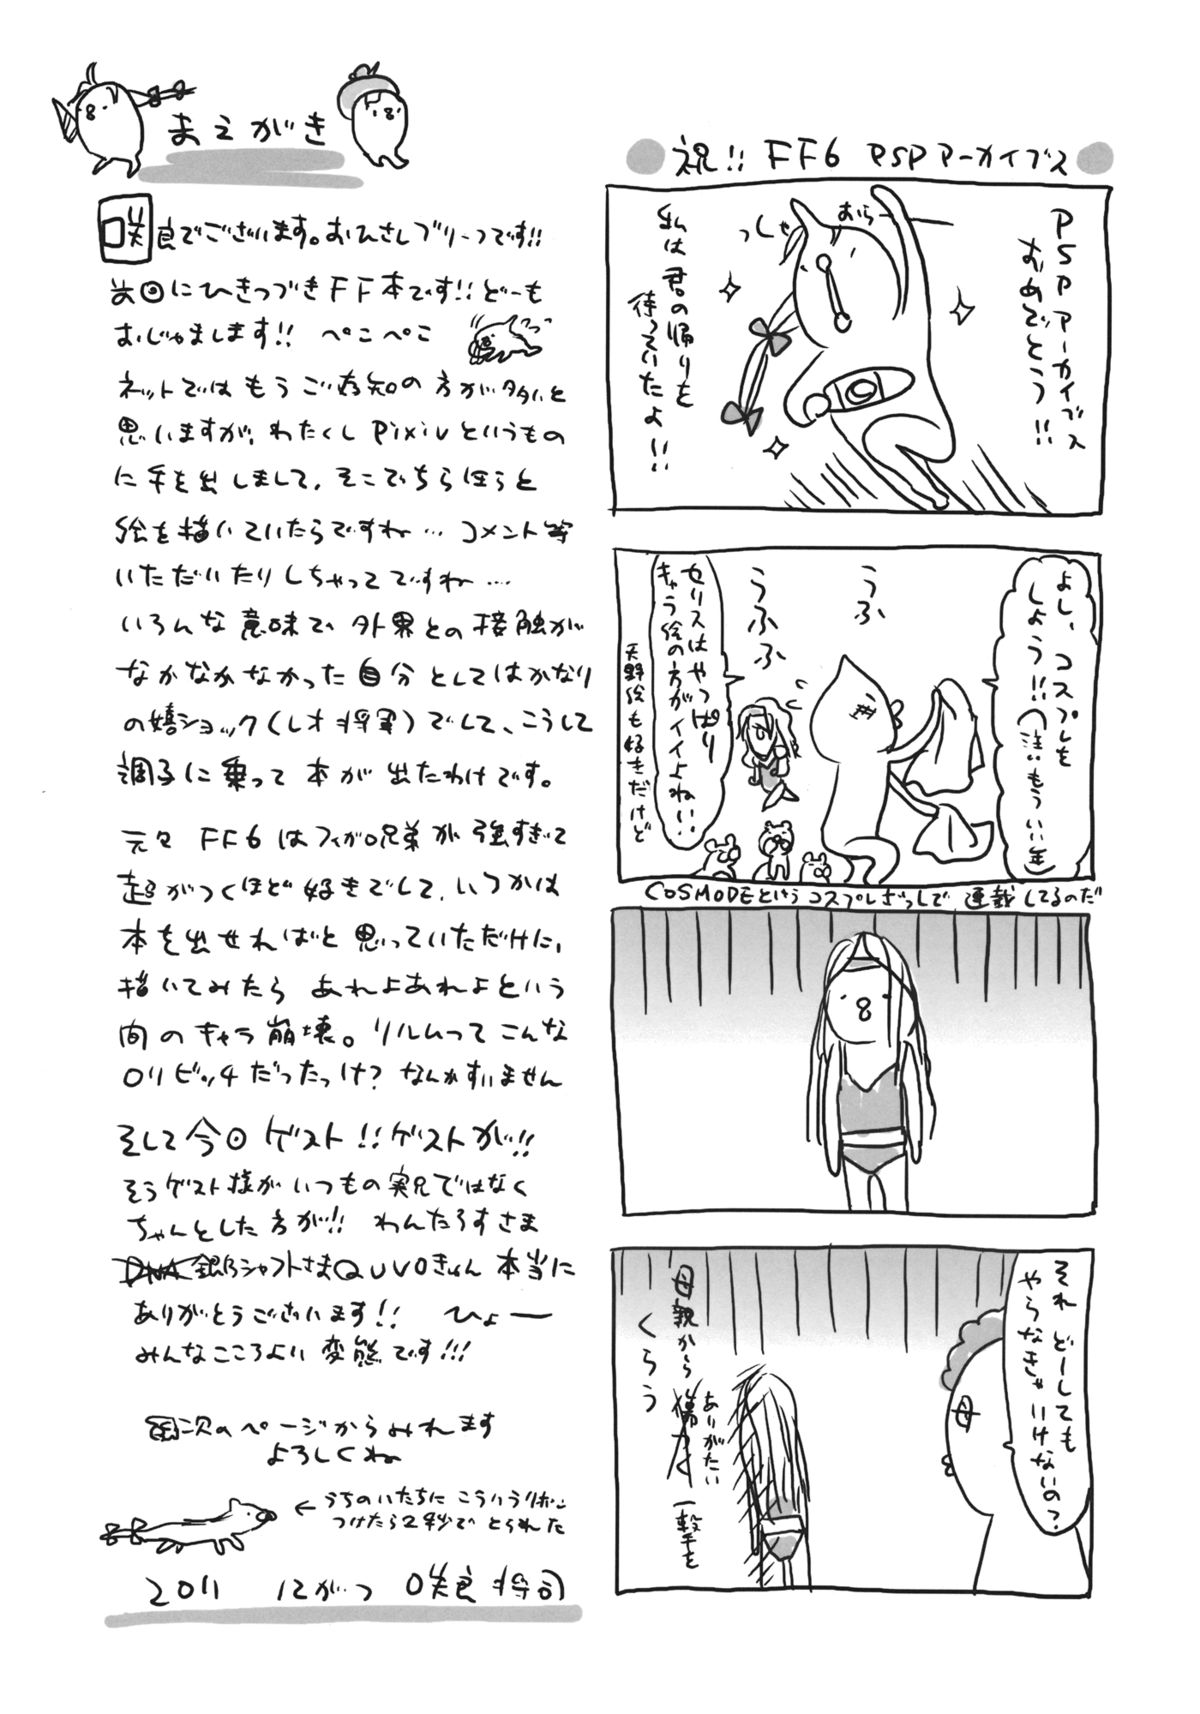 まえがき
咲良でございます。おひさしブリーフです!!
前回にひきつづきFF本です!!どーも
おじゃまします!! ぺこぺこ
ネットではもうご存知の方が多いと
思いますが、わたくしpixivというもの
に手を出しまして、そこでちらほらと
絵を描いていたらですね… コメント等
いただいたりしちゃってですね…
いろんな意味で外界との接触が
なかなかなかった自分としてはかなり
の嬉ショック(レオ将軍)でして、こうして
調子に乗って本が出たわけです。
元々FF6はフィガロ兄弟が強すぎて
超がつくほど好きでして、いつかは
本を出せればと思っていただけに、
描いてみたらあれよあれよという
間のキャラ崩壊。リルムってこんな
ロリビッチだったっけ?なんかすいません
そして今回ゲスト!!ゲストが!!
そうゲスト様がいつもの実兄ではなく
ちゃんとした方が!! わんたろすさま
銀シャフトさまQUVOきゅん 本当に
ありがとうございます!! ひょー
みんなこころよい変態です!!!
次のページからみれます
よろしくね
←うちのいたちにこういうリボン
つけたら2秒でとられた
2011 にがつ 咲良将司
祝!! FF6 PSPアーカイブス
PSPアーカイブス
おめでとう!!
おらー
っしゃ
私は君の帰りを
待っていたよ!!
よし、コスプレを
しよう!!(注:もういい年)
うふ
うふふ
セリスはやっぱり
キャラ絵の方がイイよねぃ‥
天野絵も好きだけど
COSMODEというコスプレざっしで連載してるのだ
それどーしても
やらなきゃいけないの?
母
母親から
ありがたい
一撃を
くらう